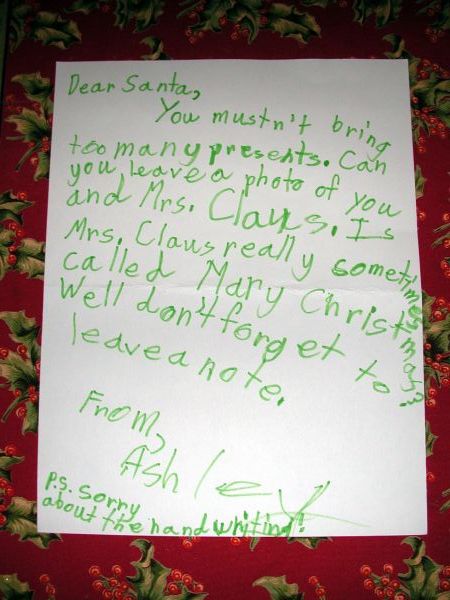 Dear Santa,
You mustn't bring
too many presents. Can
you leave a photo of you
and Mrs. Claus. Is
Mrs. Claus really sometimes
called Mary Christmas?
Well don't forget to
leave a note.
From,
Ashley
P.S. Sorry
about the handwriting!